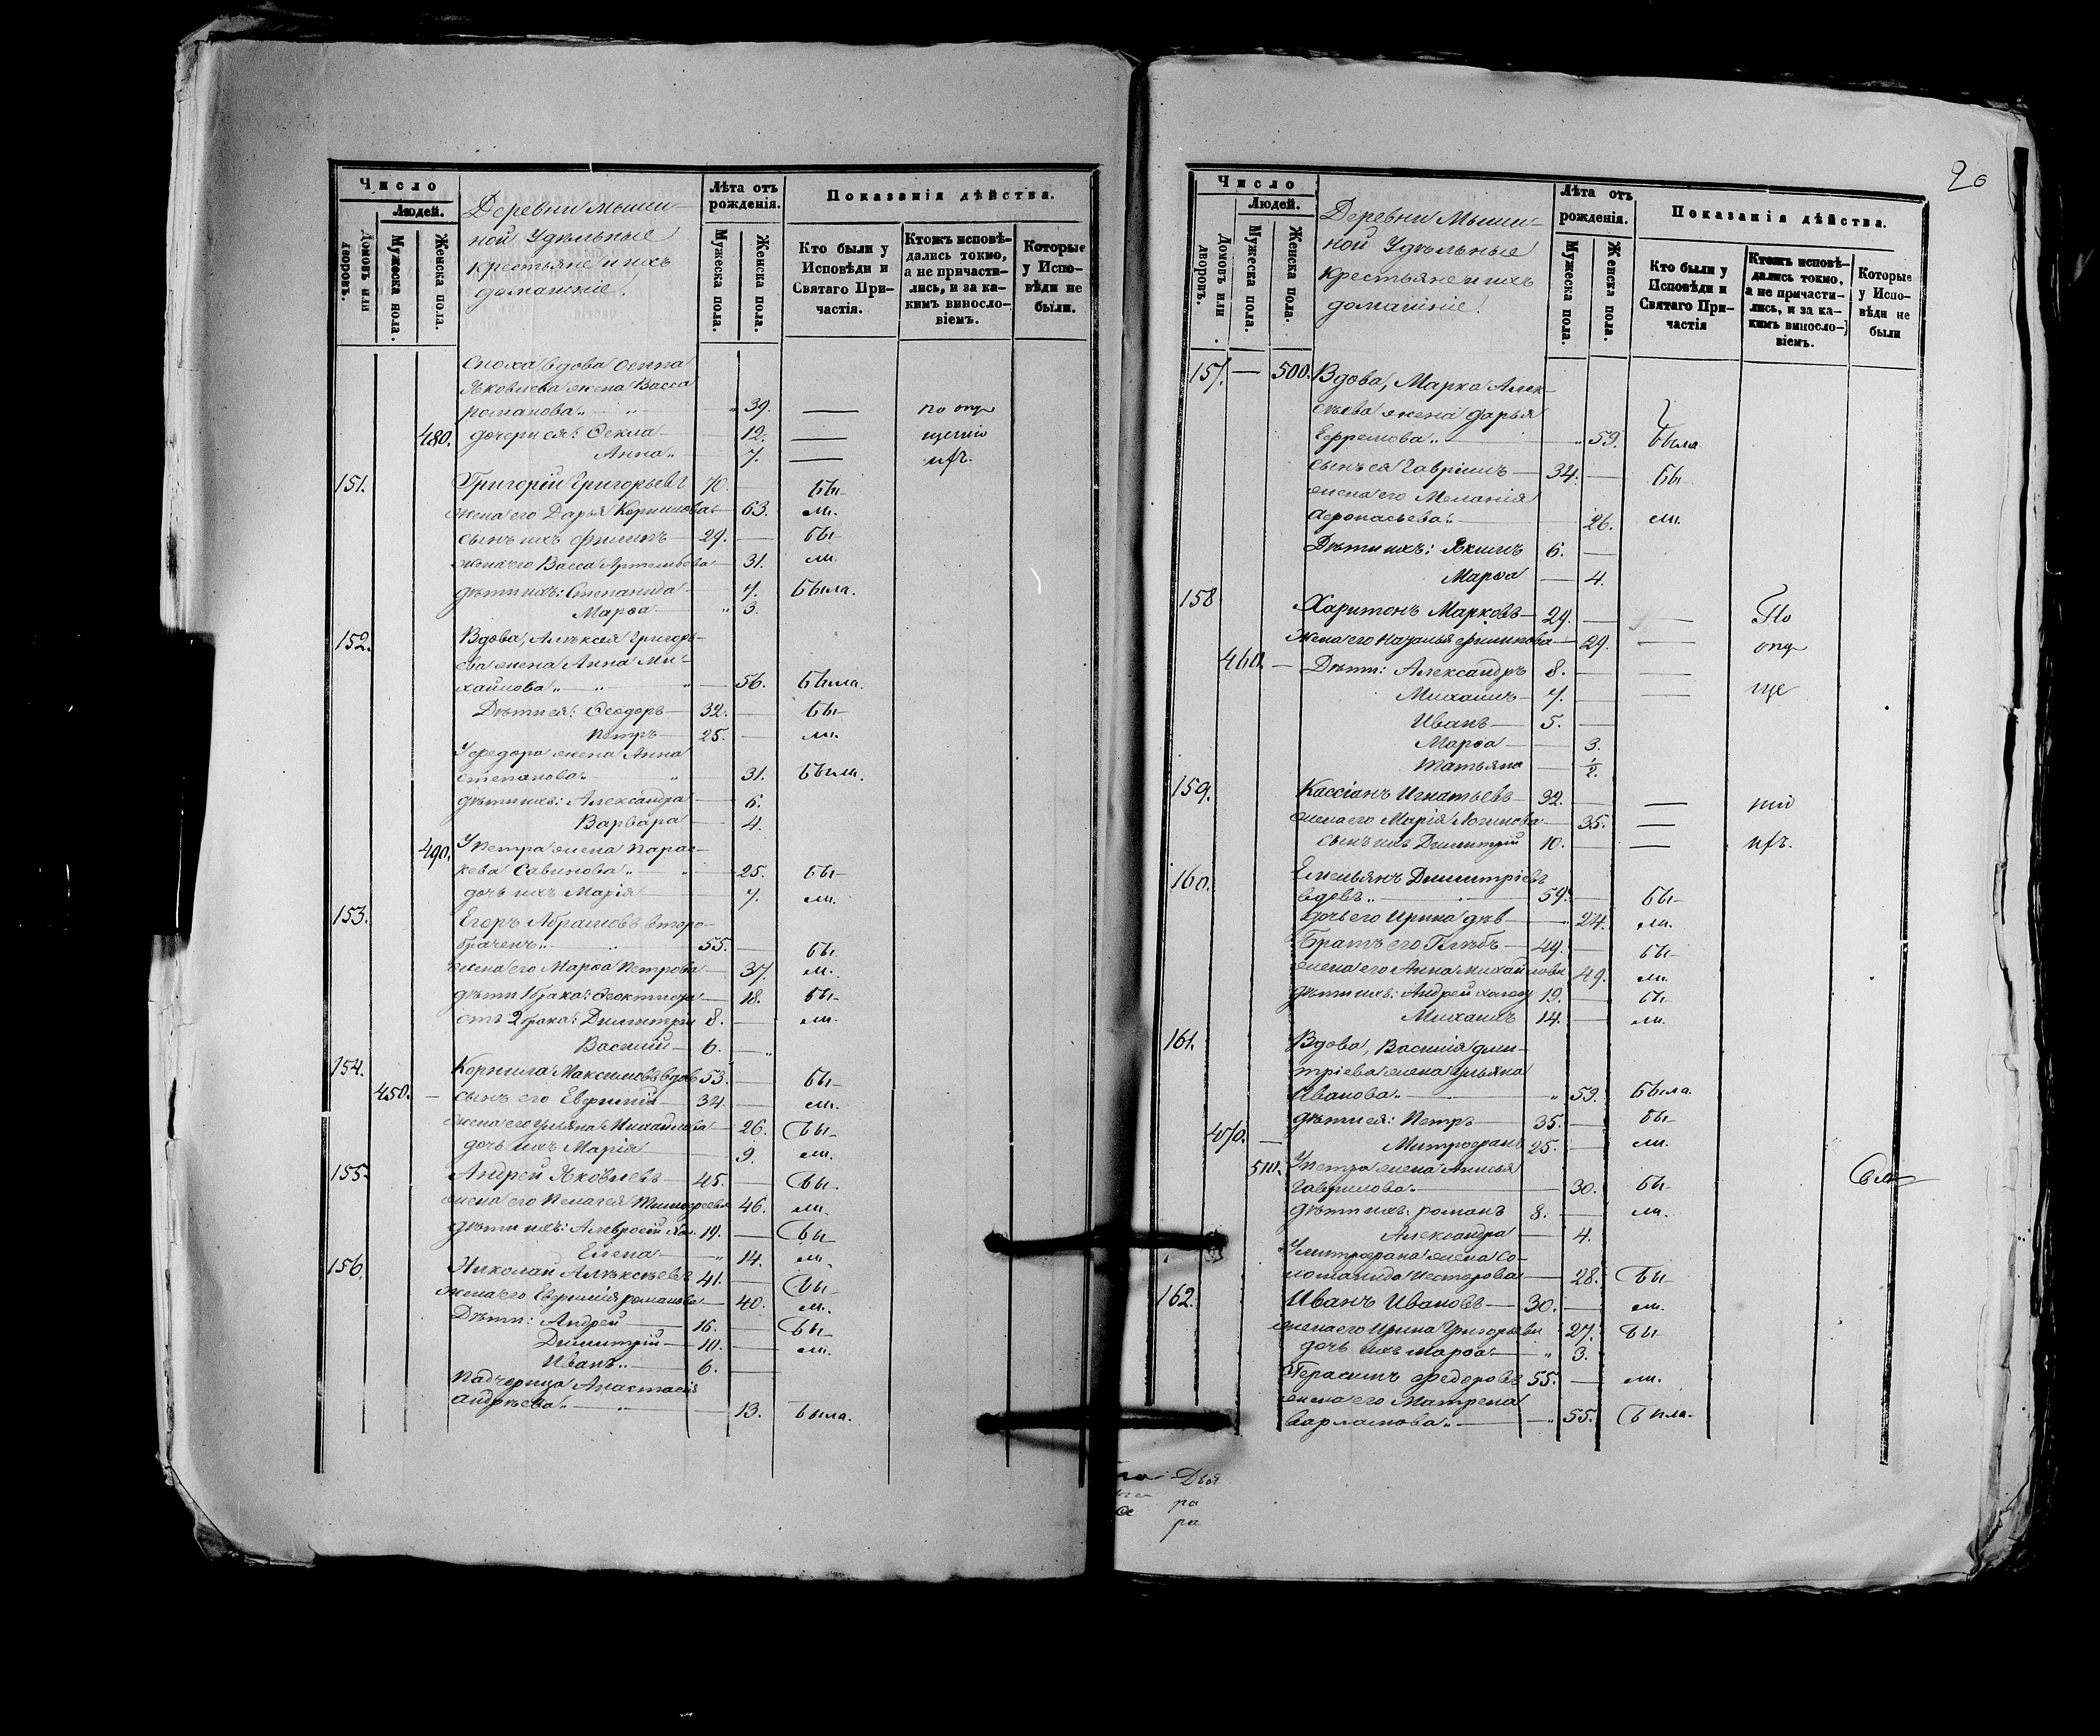 Число
Людей.
Домовъ или дворовъ.
Мужеска пола.
Женска пола.
Деревни Мыши-
ной Удѣльные
Крестьяне и ихъ
домашніе.
Лѣта отъ рожденія.
Мужеска пола.
Женска пола.
Показанія дѣйства.
Кто были у Исповѣди и Святаго При-частія.
Ктожъ исповѣ-дались токмо, а не причасти-лись, и за ка-кимъ винosло-віемъ.
Которые у Испо-вѣди не были.
сноха вдова Осипа
Яковлева жена Васса
романова „ 39. — по опу
480. дочери ея: Ѳекла — 12. — щенію
Анна „ 7. —
151. Григорій Григорьевъ 70. — Бы
жена его Дарья Корнилова — 63. ли.
сынъ ихъ Филипъ — 29. — бы
жена его Васса Артемьева — 31. ли
дѣти ихъ: Степанида — 7. Была.
Марѳа — „ 3.
152. Вдова, Алексѣя Григорь-
ева жена Анна Ми-
хайлова „ — 56. Была.
Дѣти ея: Ѳеодоръ — 32. — Бы
Петръ — 25. — ли.
У Федора жена Анна
степанова — 31. Была.
дѣти ихъ: Александра — 6.
Варвара — 4.
490. У Петра жена Парас-
кева Савинова „ — 25. бы
дочь ихъ Марія — 7. ли.
153. Егоръ Абрамовъ второ-
браченъ „ 55. — бы
жена его Марѳа Петрова — 37. ли.
дѣти 1 брака: Ѳеоктиста — 18. бы
отъ 2 брака: Димитрій 8. — ли.
Василій — 6. — „
154. Корнила Максимовъ вдов 53. — бы
450. — сынъ его Евфимій — 34. — ли.
жена его Ульяна Михайлова — 26. Бы
дочь ихъ Марія — 9. ли.
155. Андрей Яковлевъ — 45. — Бы
жена его Пелагея Тимофеева 46. ли.
дѣти ихъ: Амвросій хол. 19. — Бы
Елена — „ 14. ли.
156. Николай Алексѣевъ 41. — Бы
жена его Евфимія романова — 40. ли.
Дѣти: Андрей — 16. — Бы
Димитрій — 10. — ли.
Иванъ „ — 6. —
Падчерица Анастасія
андрѣева „ — 13. была.
20
Число
Людей.
Домовъ или дворовъ.
Мужеска пола.
Женска пола.
Деревни Мыши-
ной Удѣльные
крестьяне и ихъ
домашніе.
Лѣта отъ рожденія.
Мужеска пола.
Женска пола.
Показанія дѣйства.
Кто были у Исповѣди и Святаго При-частія
Ктожъ исповѣ-дались токмо, а не причасти-лись, и за ка-кимъ винosло-віемъ.
Которые у Испо-вѣди не были
157. — 500. Вдова, Марка Алек-
сѣева жена дарья
Ефремова „ — „ 59. была
сынъ ея Гавріилъ — 34. — бы
жена его Меланія
Аѳонасьева „ — 26. ли.
Дѣти ихъ: Якимъ 6. —
Марѳа — 4.
158 Харитонъ Марковъ — 29. — По
жена его Наталья филипова — 29. — опу
460. — Дѣти: Александръ 8. — — ще
Михаилъ — 7. —
Иванъ — 5. —
Марѳа — 3.
Татьяна — 1/2.
159. Кассіанъ Игнатьевъ — 32. — — нію
жена его Марія Логинова — 35. —
сынъ ихъ Димитрій 10. — —
160. Емельянъ Димитріевъ
вдовъ „ — 59. — бы
дочь его Ирина дѣв — „ 24. ли.
Братъ его Глѣбъ — 49. — бы
жена его Анна Михайлова 49. ли.
дѣти ихъ: Андрей холост 19. — бы
Михаилъ 14. — ли.
161. Вдова, Василія дми-
тріева жена Ульяна
Иванова „ — „ 59. Была.
дѣти ея: Петръ — 35. — бы
470. — Митрофанъ 25. — ли.
510. У петра жена Анисья
Гаврилова — 30. бы
дѣти ихъ: романъ 8. — ли.
Александра — 4.
У митрофана жена Со-
ломанида Нестерова — 28. Бы
162. Иванъ Ивановъ — 30. — ли.
жена его Ирина Григорьева 27. бы
дочь ихъ Марѳа — „ 3.
Герасимъ Федоровъ 55. — ли.
жена его Матрена
Варламова „ — „ 55. была.